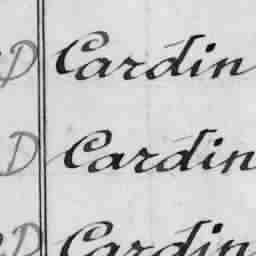 D Cardin
D Cardin
D Cardin